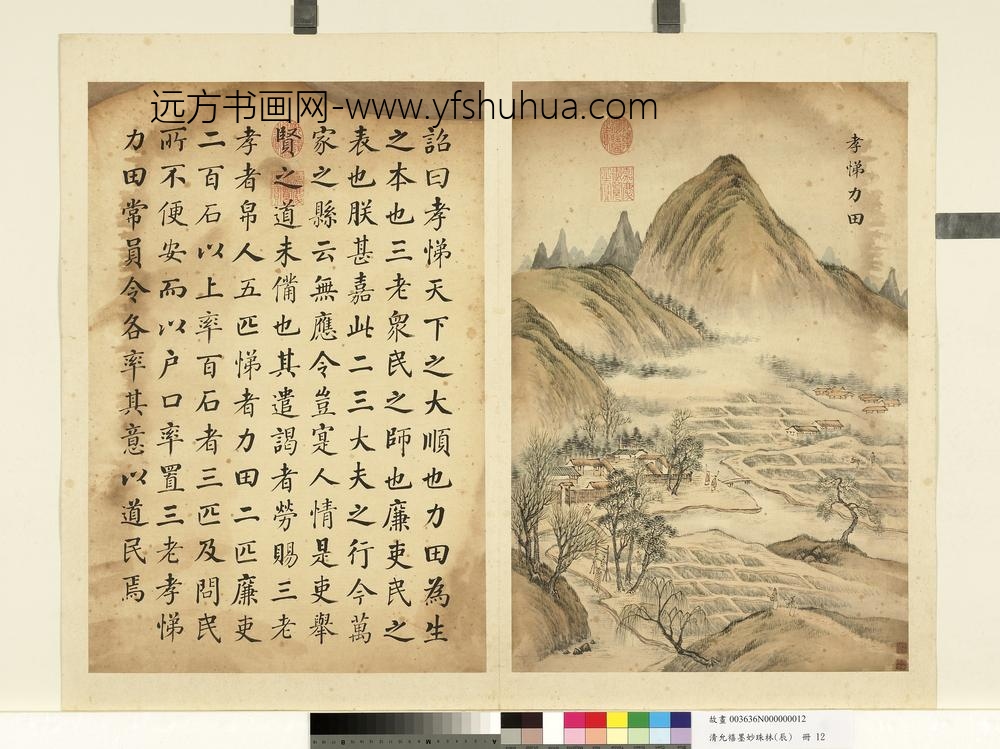 远方书画网-www.yfshuhua.com
孝悌力田
詔曰孝悌天下之大順也力田為生
之本也三老衆民之師也廉吏民之
表也朕甚嘉此二三大夫之行今萬
家之縣云無應令豈寔人情是吏舉
賢之道未偹也其遣謁者勞賜三老
孝者帛人五匹悌者力田二匹廉吏
二百石以上率百石者三匹及問民
所不便安而以户口率置三老孝悌
力田常員令各率其意以道民焉
故畫 003636N000000012
清允禧墨妙珠林(辰) 冊 12